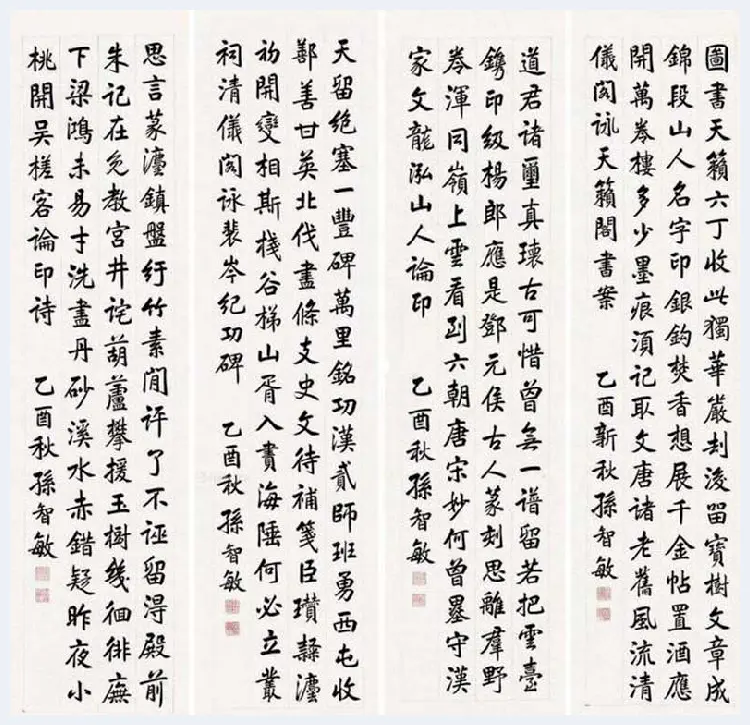 圖書天籟六丁收此獨華嚴刦後留寶樹文章成
錦段山人名字印銀鈎焚香想展千金帖置酒應
開萬卷樓多少墨痕須記取文唐諸老舊風流清
儀閣詠天籟閣書案 乙酉新秋孫智敏
道君諸璽真瓌古可惜曾無一譜留若把雲臺
鐫印級楊郎應是鄧元侯古人篆刻思離羣野
券渾同嶺上雲看到六朝唐宋妙何曾墨守漢
家文龍泓山人論印 乙酉秋孫智敏
天留絕塞一豐碑萬里銘功漢貳師班勇西屯收
鄯善甘英北伐盡條支史文待補箋臣瓚隸灋
初開變相斯棧谷梯山胥入賣海陲何必立叢
祠清儀閣詠裴岑紀功碑 乙酉秋孫智敏
思言篆灋鎮盤紆竹素閒評了不誣留得殿前
朱記在免教宮井詫葫蘆攀援玉樹幾徊徘廡
下梁鴻未易才洗盡丹砂溪水赤錯疑昨夜小
桃開吳槎客論印詩 乙酉秋孫智敏